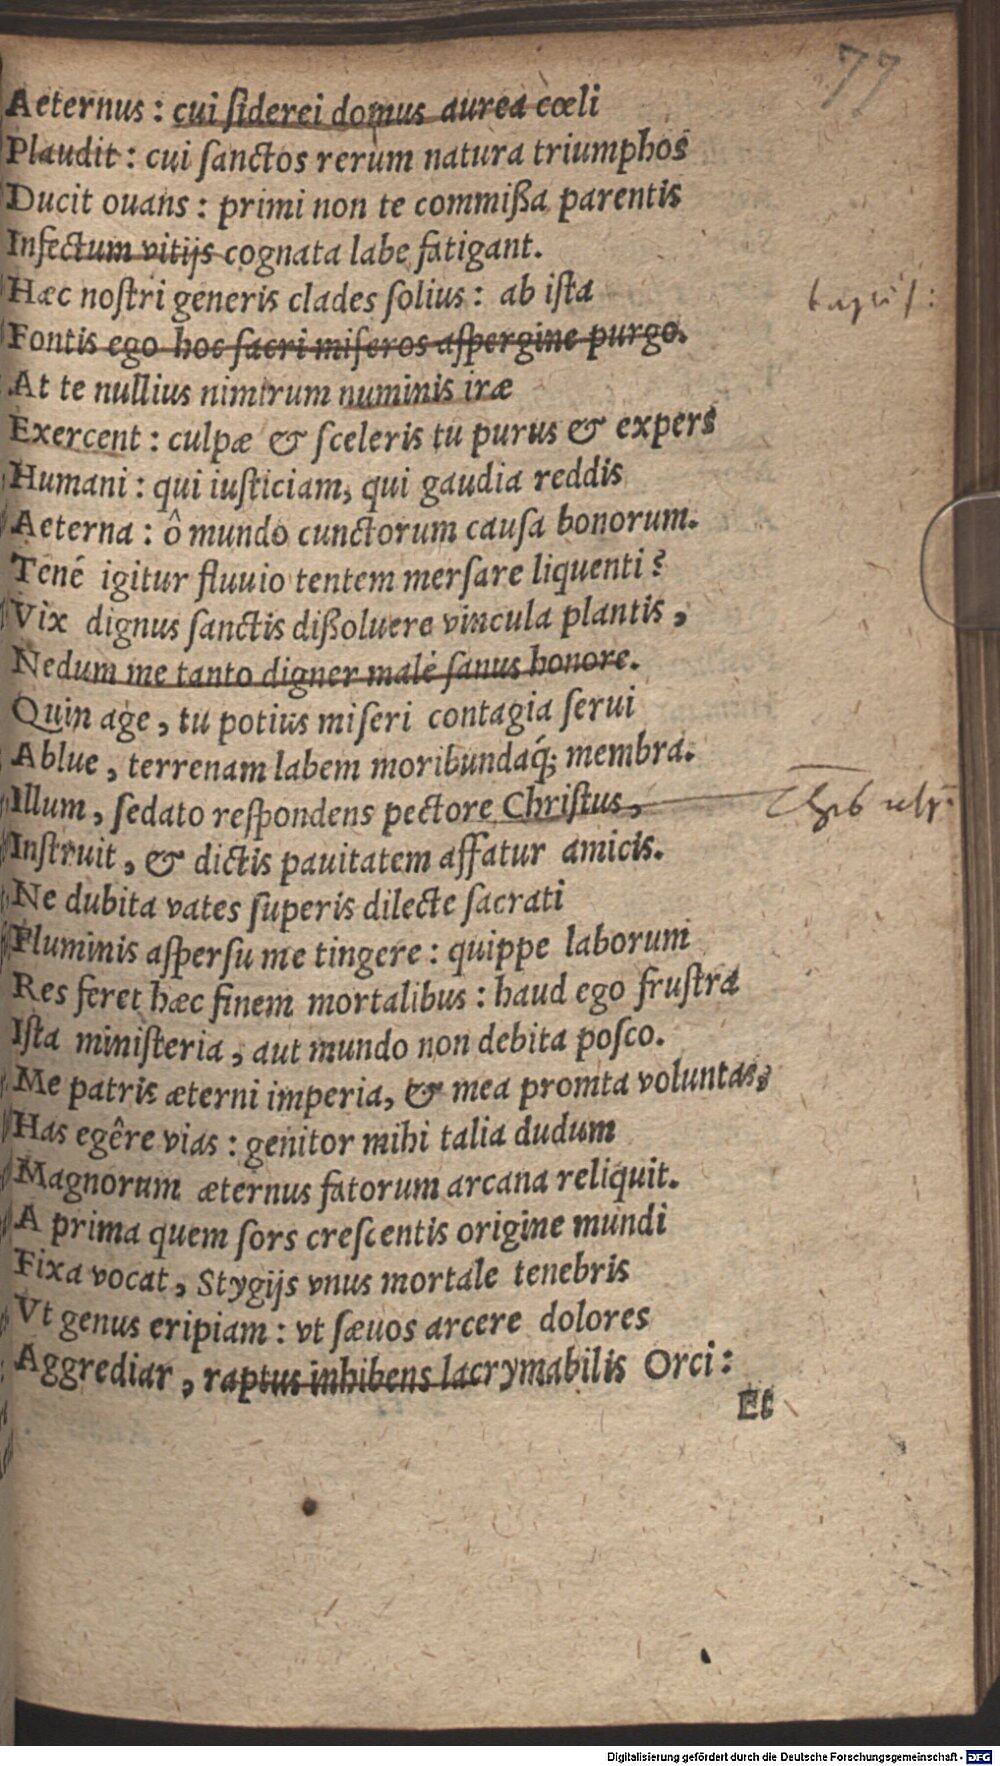 77
Aeternus : cui ſiderei domus aurea cœli
Plaudit : cui ſanctos rerum natura triumphos
Ducit ouans : primi non te commiſſa parentis
Infectum vitijs cognata labe fatigant.
Hæc noſtri generis clades ſolius : ab iſta
Fontis ego hoc ſacri miſeros aſpergine purgo.
At te nullius nimirum numinis iræ
Exercent : culpæ & ſceleris tu purus & expers
Humani : qui iuſticiam, qui gaudia reddis
Aeterna : ô mundo cunctorum cauſa bonorum.
Tené igitur fluuio tentem merſare liquenti ?
Vix dignus ſanctis diſſoluere vincula plantis ,
Nedum me tanto digner malè ſanus honore.
Quin age , tu potius miſeri contagia ſerui
Ablue , terrenam labem moribundaq́; membra.
Illum , ſedato reſpondens pectore Chriſtus,
Inſtruit , & dictis pauitatem affatur amicis.
Ne dubita vates ſuperis dilecte ſacrati
Fluminis aſperſu me tingere : quippe laborum
Res feret hæc finem mortalibus : haud ego fruſtra
Iſta miniſteria , aut mundo non debita poſco.
Me patris æterni imperia, & mea promta voluntas,
Has egêre vias : genitor mihi talia dudum
Magnorum æternus fatorum arcana reliquit.
A prima quem ſors creſcentis origine mundi
Fixa vocat , Stygijs vnus mortale tenebris
Vt genus eripiam : vt ſæuos arcere dolores
Aggrediar , raptus inhibens lacrymabilis Orci :
Et
Digitalisierung gefördert durch die Deutsche Forschungsgemeinschaft - DFG